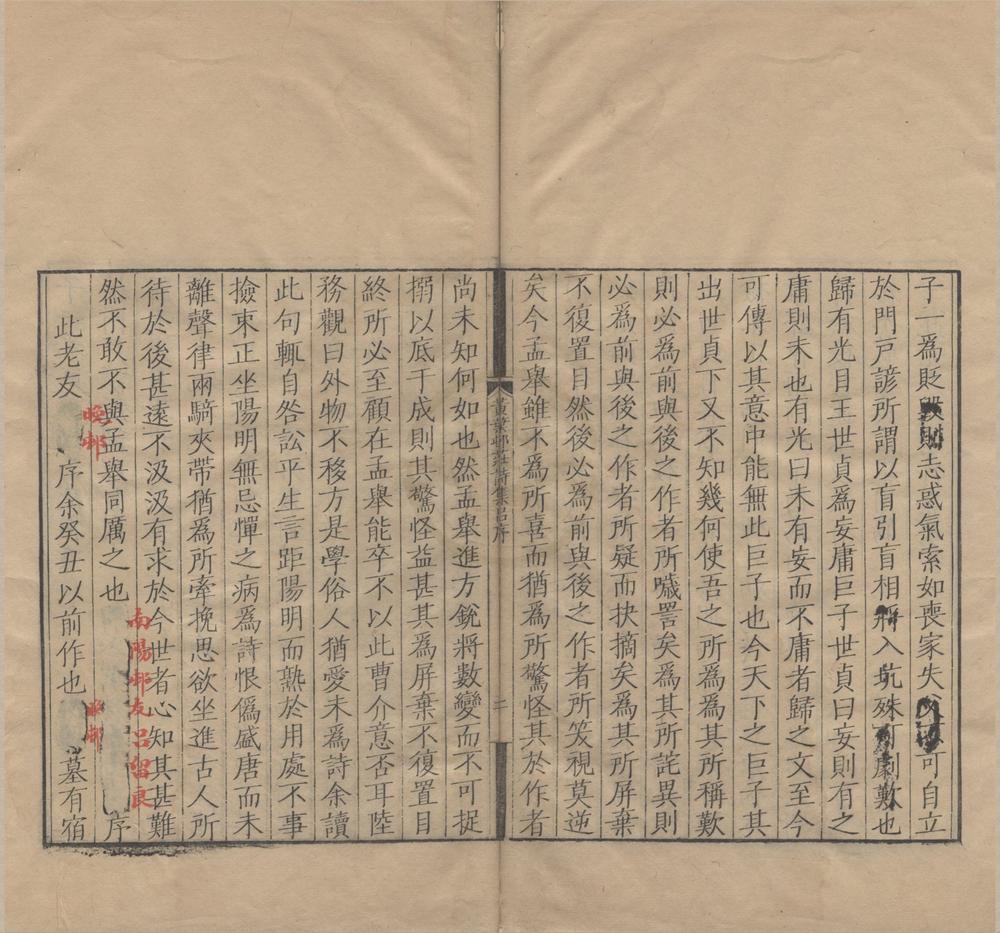 子一為貶毀則志惑氣索如喪家失可自立
於門戸諺所謂以盲引盲相將入坑殊可劇歎也
歸有光目王世貞為妄庸巨子世貞曰妄則有之
庸則未也有光曰未有妄而不庸者歸之文至今
可傳以其意中能無此巨子也今天下之巨子其
出世貞下又不知幾何使吾之所為為其所稱歎
則必為前與後之作者所嘰詈矣為其所詫異則
必為前與後之作者所疑而抉摘矣為其所屏棄
不復置目然後必為前與後之作者所笑視莫逆
矣今孟舉雖不為所喜而猶為所驚怪其於作者
黃葉邨莊詩集呂序
二
尚未知何如也然孟舉進方銳將數變而不可捉
搦以底于成則其驚怪益甚其為屏棄不復置目
終所必至顧在孟舉能卒不以此曹介意否耳陸
務觀曰外物不移方是學俗人猶愛未為詩余讀
此句輒自咎訟平生言距陽明而熟於用處不事
撿束正坐陽明無忌憚之病為詩恨偽盛唐而未
離聲律兩騎夾帶猶為所牽挽思欲坐進古人所
待於後甚遠不汲汲有求於今世者心知其甚難
然不敢不與孟舉同厲之也
南陽邨友呂留良
序
此老友
晚邨
序余癸丑以前作也
墓有宿